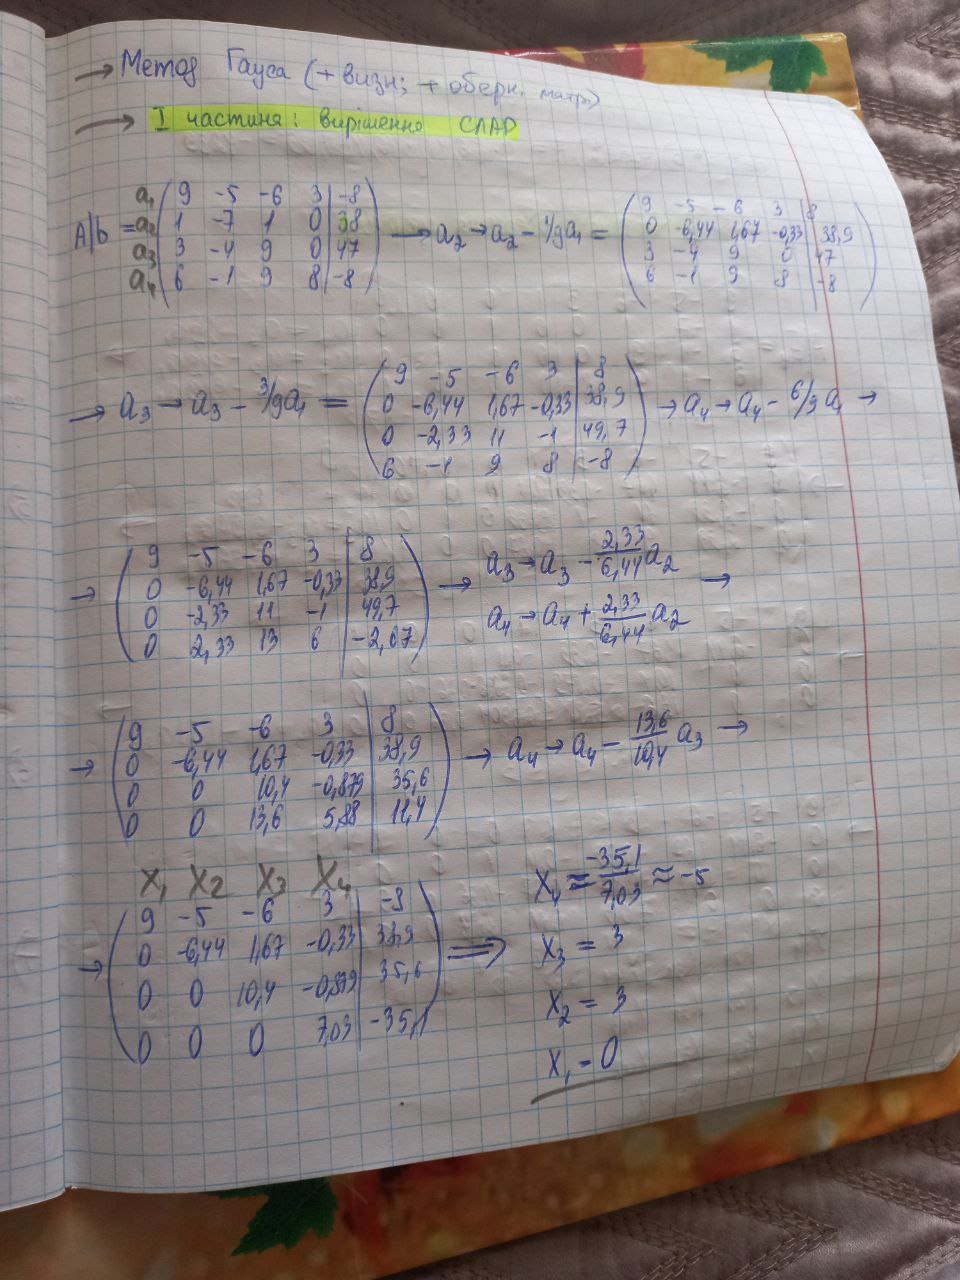 → Метод Гауса (+ визн; + оберн. матр.)
→ I частина: вирішення СЛАР
A|b = a₁ a₂ a₃ a₄ ( 9 -5 -6 3 | -8
1 -7 1 0 | 38
3 -4 9 0 | 47
6 -1 9 8 | -8 ) → a₂ → a₂ - 1/9a₁ = ( 9 -5 -6 3 | 8
0 -6,44 1,67 -0,33 | 38,9
3 -4 9 0 | 47
6 -1 9 8 | -8 )
→ a₃ → a₃ - 3/9a₁ = ( 9 -5 -6 3 | 8
0 -6,44 1,67 -0,33 | 38,9
0 -2,33 11 -1 | 49,7
6 -1 9 8 | -8 ) → a₄ → a₄ - 6/9 a₁ →
→ ( 9 -5 -6 3 | 8
0 -6,44 1,67 -0,33 | 38,9
0 -2,33 11 -1 | 49,7
0 2,33 13 6 | -2,67 ) → a₃ → a₃ - 2,33/6,44 a₂
a₄ → a₄ + 2,33/6,44 a₂ →
→ ( 9 -5 -6 3 | 8
0 -6,44 1,67 -0,33 | 38,9
0 0 10,4 -0,879 | 35,6
0 0 13,6 5,88 | 11,4 ) → a₄ → a₄ - 13,6/10,4 a₃ →
X₁ X₂ X₃ X₄
→ ( 9 -5 -6 3 | -8
0 -6,44 1,67 -0,33 | 38,9
0 0 10,4 -0,879 | 35,6
0 0 0 7,03 | -35,1 ) ⟹ X₄ = -35,1/7,03 ≈ -5
X₃ = 3
X₂ = 3
X₁ = 0